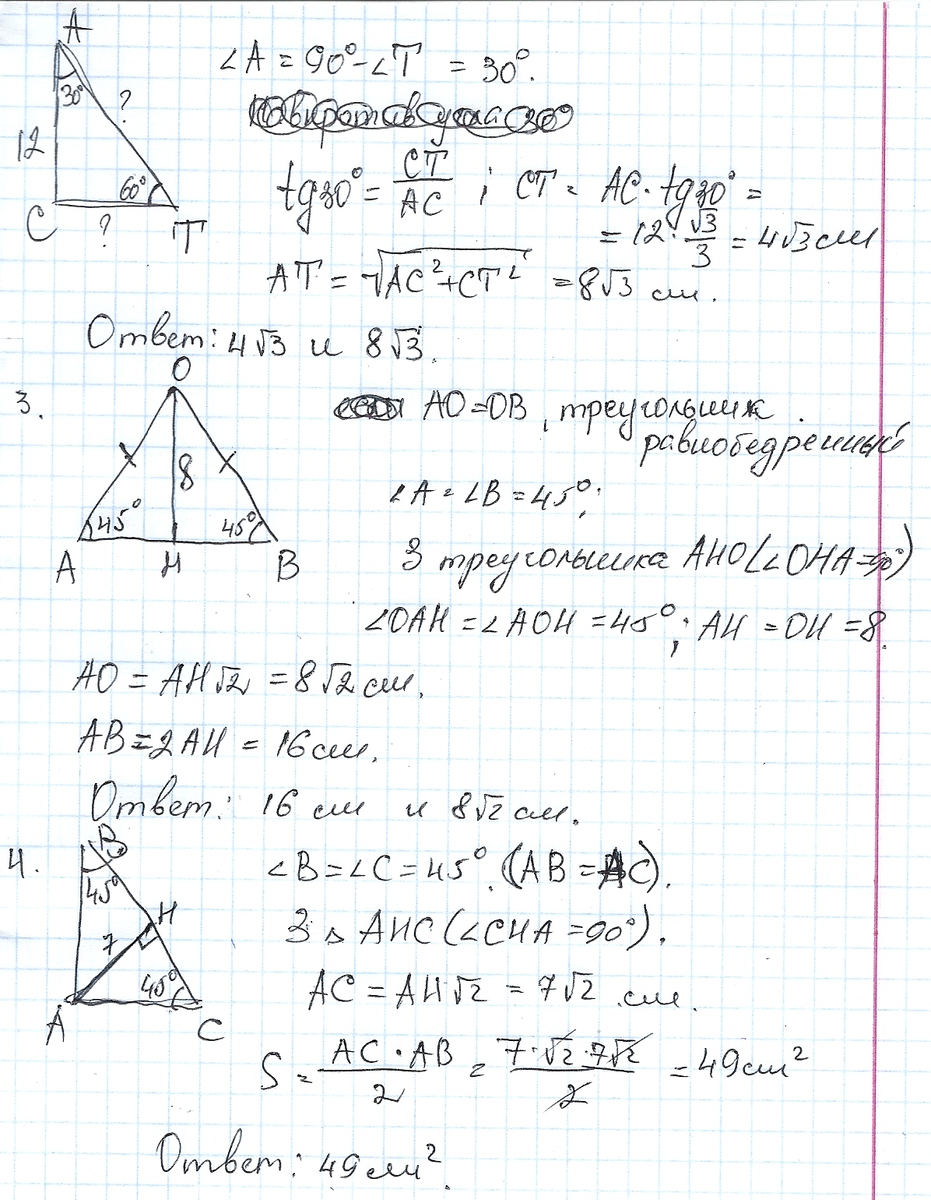 A
30°
?
12
60°
C
?
T
∠A = 90° - ∠T = 30°.
tg30° = CT/AC ; CT = AC · tg30° =
= 12 · √3/3 = 4√3 см
AT = √(AC² + CT²) = 8√3 см.
Ответ: 4√3 и 8√3.
3.
O
8
45°
45°
A
H
B
AO = OB, треугольник
равнобедренный
∠A = ∠B = 45°;
З треугольника AHO (∠OHA = 90°)
∠OAH = ∠AOH = 45°; AH = OH = 8.
AO = AH√2 = 8√2 см.
AB = 2AH = 16 см.
Ответ: 16 см и 8√2 см.
4.
B
45°
H
7
45°
A
C
∠B = ∠C = 45°. (AB = AC).
З ▵ AHC (∠CHA = 90°).
AC = AH√2 = 7√2 см.
S = AC · AB/2 = 7 · √2 · 7√2/2 = 49 см²
Ответ: 49 см².